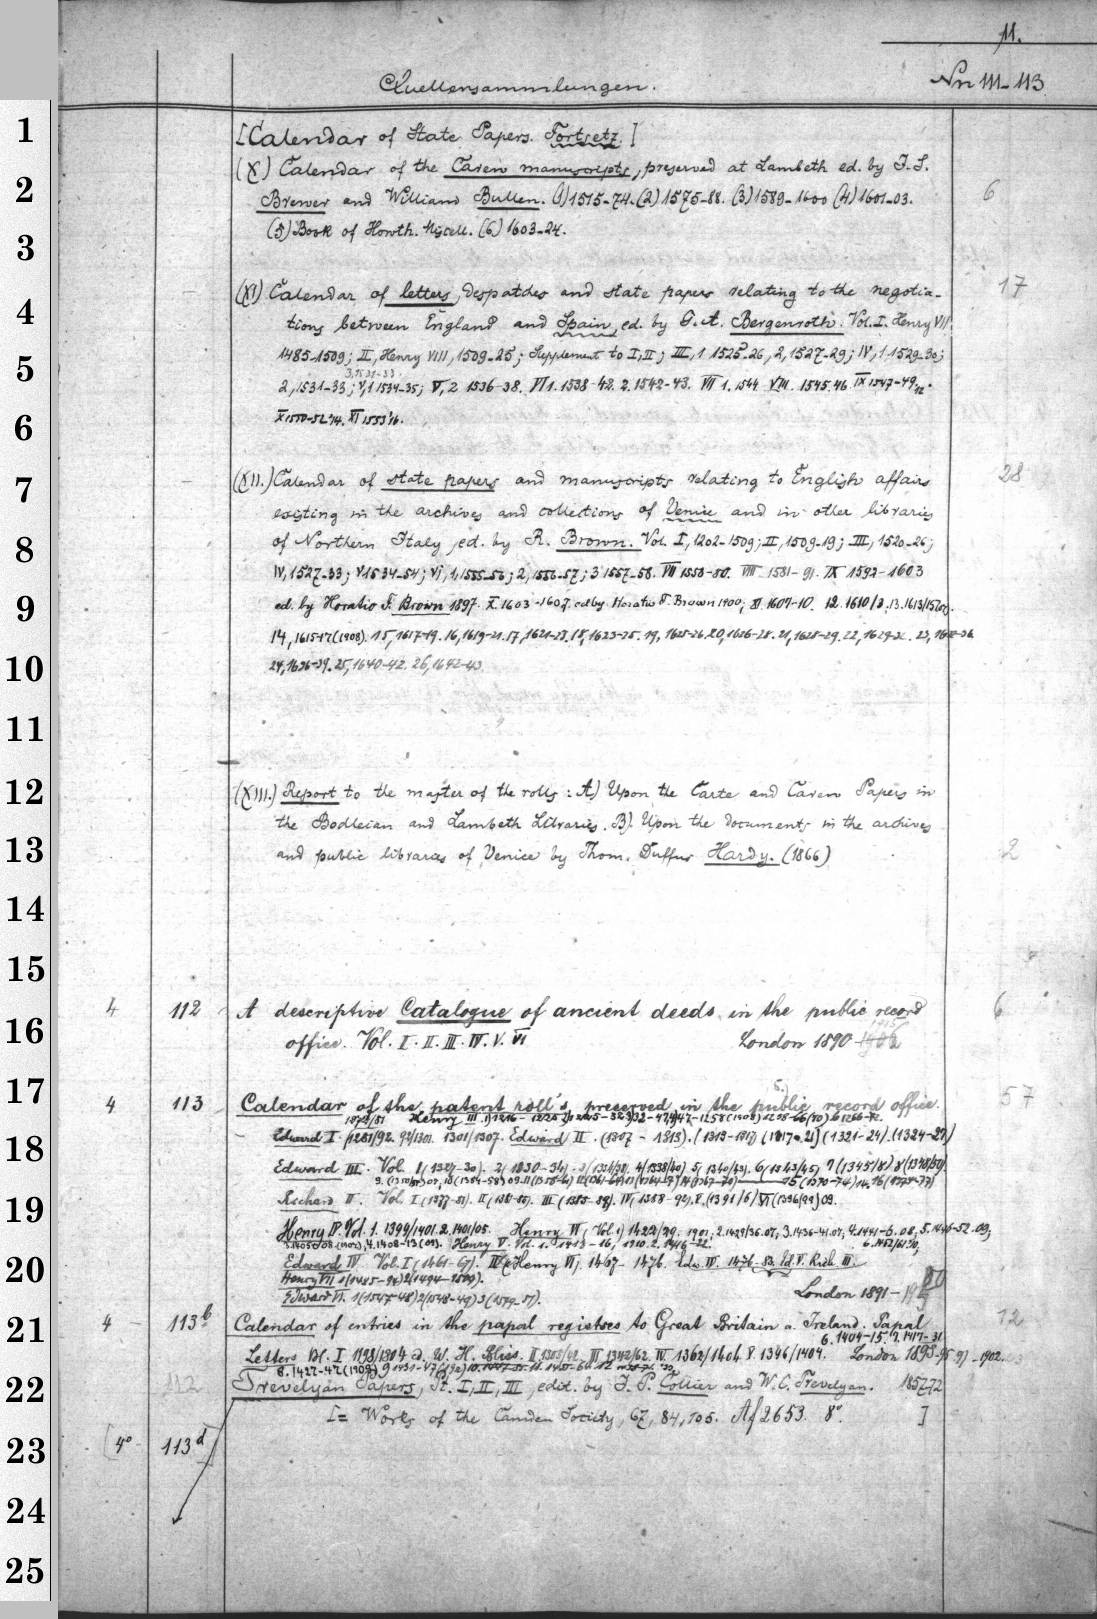 11.
Quellensammlungen. Nrn 111-113
1
[Calendar of State Papers. Fortsetz.]
(X) Calendar of the Carew manuscripts, preserved at Lambeth ed. by J. S.
2
Brewer and William Bullen. (1) 1515-74. (2) 1575-88. (3) 1589-1600 (4) 1601-03. 6
(5) Book of Howth. Miscell. (6) 1603-24.
3
(XI) Calendar of letters, despatches and state papers relating to the negotia- 17
4
tions between England and Spain, ed. by G. A. Bergenroth. Vol. I. Henry VII
1485-1509; II, Henry VIII, 1509-25; Supplement to I, II; III, 1 1525-26, 2, 1527-29; IV, 1 1529-30;
5
2, 1531-33; V, 1 1534-35; V, 2 1536-38. VI 1. 1538-42. 2. 1542-43. VII 1. 1544 VIII. 1545.46. IX 1547-49
X 1550-52 '14. XI 1553 '16.
6
(XII.) Calendar of state papers and manuscripts relating to English affairs 28
7
existing in the archives and collections of Venice and in other libraries
8
of Northern Italy, ed. by R. Brown. Vol. I, 1202-1509; II, 1509-19; III, 1520-26;
IV, 1527-33; V 1534-54; VI, 1, 1555-56; 2, 1556-57; 3 1557-58. VII 1558-80. VIII 1581-91. IX 1592-1603
9
ed. by Horatio F. Brown 1897. X. 1603-1607. ed by Horatio F. Brown 1900; XI. 1607-10. 12. 1610/3, 13. 1613/15
14, 1615-17 (1908). 15, 1617-19. 16, 1619-21. 17, 1621-23. 18, 1623-25. 19, 1625-26. 20, 1626-28. 21, 1628-29. 22, 1629-32. 23, 1632-36
10
24, 1636-39. 25, 1640-42. 26, 1642-43.
11
12
(XIII.) Report to the master of the rolls: A) Upon the Carte and Carew Papers in
the Bodleian and Lambeth Libraries. B) Upon the documents in the archives
13
and public libraries of Venice by Thom. Duffus Hardy. (1866) 2
14
15
4 112 A descriptive Catalogue of ancient deeds in the public record 6
16
office. Vol. I. II. III. IV. V. VI London 1890-1906
17
4 113 Calendar of the patent roll's preserved in the public record office. 57
Henry III. 1) 1216-1225 2) 1225-32 3) 32-47 4) 47-1258 (1908) 5 1258-66 (10) 6 1266-72.
Edward I. 1281/92. 92/1301. 1301/1307. Edward II. (1307-1313). (1313-1317) (1317-21) (1321-24). (1324-27)
18
Edward III. Vol. 1 (1327-30). 2) 1330-34). 3 (1334/38). 4 (1338/40) 5 (1340/43). 6 (1343/45) 7 (1345/8) 8 (1348/50).
15 (1370-74) 16 (1374-77)
19
Richard II. Vol. I (1377-81). II (1381-85). III (1385-89). IV, 1388-92). V. (1391/6) VI (1396/99) 09.
Henry IV. Vol. 1. 1399/1401. 2. 1401/05. Henry VI, (Vol. 1) 1422/29. 1901, 2. 1429/36. 07, 3. 1436-41. 07, 4. 1441-6. 08, 5. 1446-52. 09,
3. 1405-08 (1907), 4. 1408-13 (09). Henry V. Vol. 1. 1413-16, 1910. 2. 1416-22. 6. 1452/61 10,
20
Edward IV. Vol. I (1461-67). Henry VI, 1467-1476. Edw. IV. 1476-85. Ed. V. Rich. III.
Henry VII 1 (1485-94) 2 (1494-1509).
Edward VI. 1 (1547-48) 2 (1548-49) 3 (1549-51). London 1891-
21
4 113b Calendar of entries in the papal registres to Great Britain a. Ireland. Papal 12
6. 1404-15. 7. 1417-31
Letters Bd. I 1198/1304 d. W. H. Bliss. II 1305/42. III 1342/62. IV. 1362/1404 P. 1396/1404. London 1893-95-97-1902.
22
112 Trevelyan Papers, Pt. I, II, III, edit. by J. P. Collier and W. C. Trevelyan. 1857-72
[= Works of the Camden Society, 67, 84, 105. Af 2653. 8°. ]
23
[4° 113d]
24
25